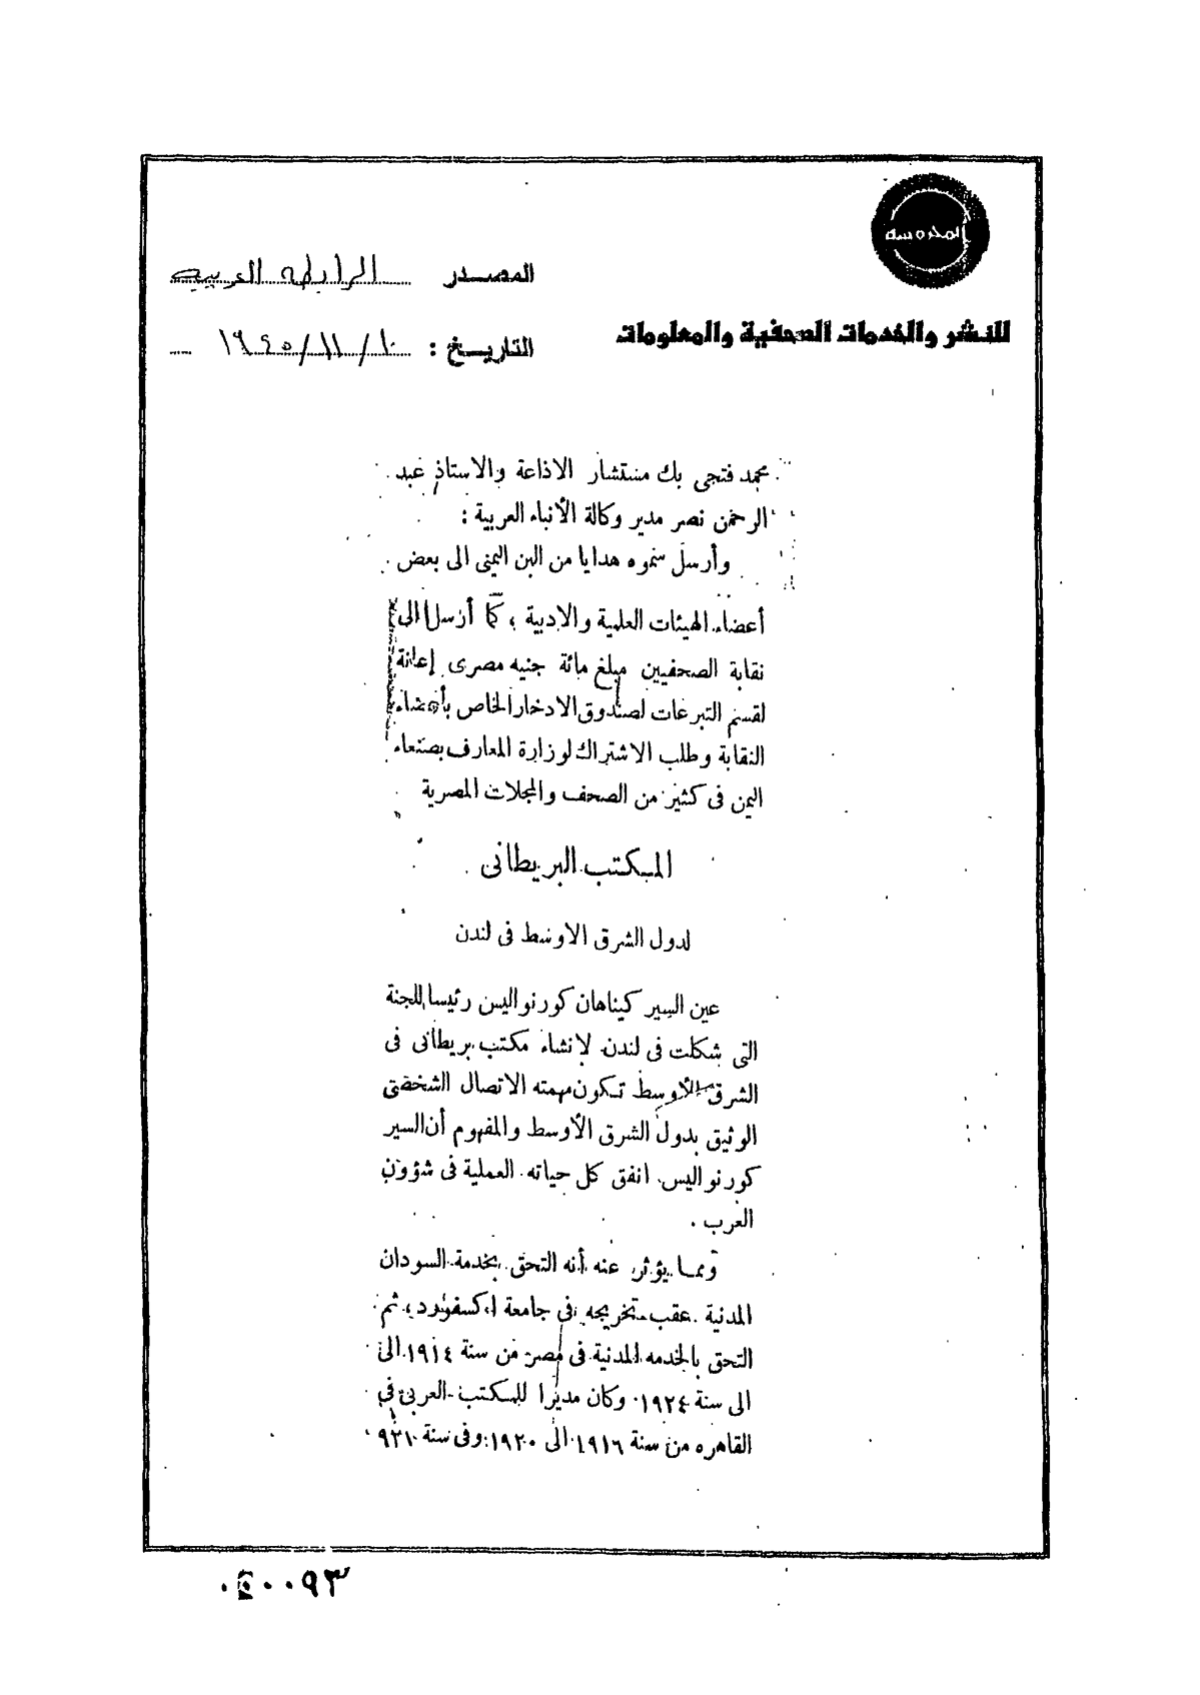 المحروسة
المصدر الرابطه العربيه
للنشر والخدمات الصحفية والمعلومات
التاريخ : ١٩٤٥/١١/١٠
محمد فتحى بك مستشار الاذاعة والاستاذ عبد
الرحمن نصر مدير وكالة الأنباء العربية :
وأرسل سموه هدايا من البن اليمنى الى بعض
أعضاء الهيئات العلمية والادبية ، كما أرسل الى
نقابة الصحفيين مبلغ مائة جنيه مصرى إعانة
لقسم التبرعات لصندوق الادخار الخاص بأعضاء
النقابة وطلب الاشتراك لوزارة المعارف بصنعاء
اليمن فى كثير من الصحف والمجلات المصرية
المكتب البريطانى
لدول الشرق الاوسط فى لندن
عين السير كيناهان كورنواليس رئيسا للجنة
التى شكلت فى لندن لانشاء مكتب بريطانى فى
الشرق الأوسط تكون مهمته الاتصال الشخصى
الوثيق بدول الشرق الأوسط والمفهوم أن السير
كورنواليس انفق كل حياته العملية فى شؤون
العرب .
ومما يؤثر عنه أنه التحق بخدمة السودان
المدنية عقب تخريجه فى جامعة اكسفورد ، ثم
التحق بالخدمه المدنية فى مصر من سنة ١٩١٤ الى
الى سنة ١٩٢٤ وكان مديرا للمكتب العربى فى
القاهره من سنة ١٩١٦ الى ١٩٢٠ وفى سنة ٩٢١
٠٥٠٠٩٣